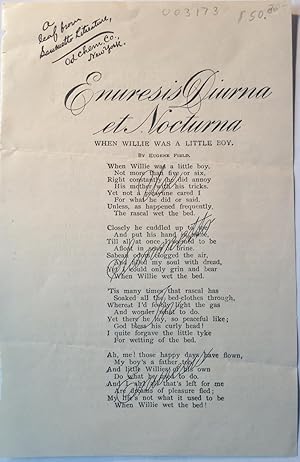 a
leaf from
Sanmetto Literature,
Od Chem. Co.,
New York.
003173
$50.00
Enuresis Diurna
et Nocturna
WHEN WILLIE WAS A LITTLE BOY.
BY EUGENE FIELD.
When Willie was a little boy,
Not more than five or six,
Right constantly he did annoy
His mother with his tricks.
Yet not a picayune cared I
For what he did or said,
Unless, as happened frequently,
The rascal wet the bed.
Closely he cuddled up to me
And put his hand in mine,
Till all at once I seemed to be
Afloat in seas of brine.
Sabean odors clogged the air,
And filled my soul with dread,
Yet I could only grin and bear
When Willie wet the bed.
'Tis many times that rascal has
Soaked all the bed-clothes through,
Whereat I'd feebly light the gas
And wonder what to do.
Yet there he lay, so peaceful like;
God bless his curly head!
I quite forgave the little tyke
For wetting of the bed.
Ah, me! those happy days have flown,
My boy's a father, too,
And little Willies of his own
Do what he used to do.
And I, ah! all that's left for me
Are dreams of pleasure fled;
My life's not what it used to be
When Willie wet the bed!